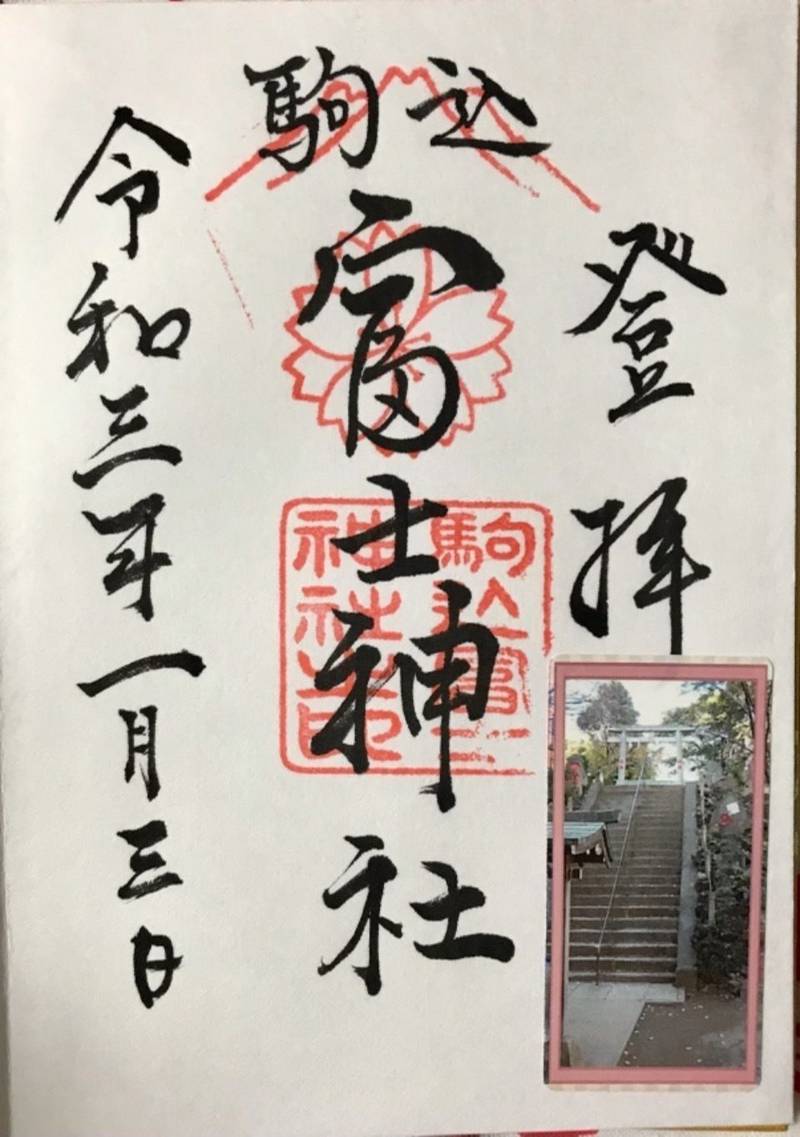 登拝
駒込
富士神社
令和三年一月三日
駒込富士
神社之印